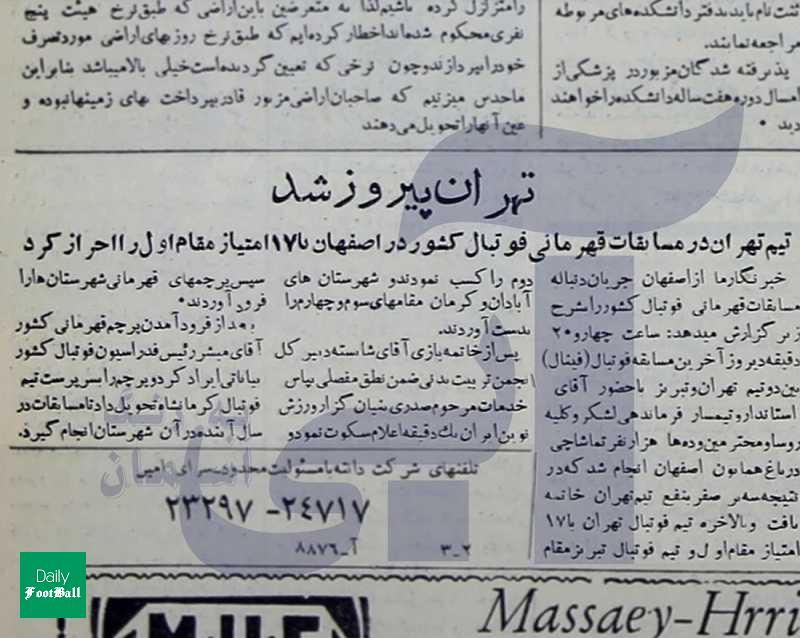 ثبت نام باید بدفتر دانشکده‌های مربوطه
مراجعه نمایند.
پذیرفته شدگان مزبور در پزشکی از
امسال دوره هفت ساله دانشکده را خواهند
دید •
را متزلزل کرده باشیم لذا به متعرضین باین اراضی که طبق نرخ هیئت پنج
نفری محکوم شده‌اند اخطار کرده‌ایم که طبق نرخ روز بهای اراضی مورد تصرف
خود را بپردازند و چون نرخی که تعیین گردیده است خیلی بالا میباشد بنابراین
ما حدس میزنیم که صاحبان اراضی مزبور قادر بپرداخت بهای زمینها نبوده و
عین آنها را تحویل می‌دهند
تهران پیروز شد
تیم تهران در مسابقات قهرمانی فوتبال کشور در اصفهان با ۱۷ امتیاز مقام اول را احراز کرد
خبرنگار ما از اصفهان جریان دنباله
مسابقات قهرمانی فوتبال کشور را بشرح
زیر گزارش میدهد: ساعت چهار و ۲۰
دقیقه دیروز آخرین مسابقه فوتبال (فینال)
بین دو تیم تهران و تبریز با حضور آقای
استاندار و تیمسار فرماندهی لشگر و کلیه
روسا و محترمین و ده‌ها هزار نفر تماشاچی
در باغ همایون اصفهان انجام شد که در
نتیجه سه بر صفر بنفع تیم تهران خاتمه
یافت و بالاخره تیم فوتبال تهران با ۱۷
امتیاز مقام اول و تیم فوتبال تبریز مقام
دوم را کسب نمودند و شهرستان های
آبادان و کرمان مقامهای سوم و چهارم را
بدست آوردند.
پس از خاتمه بازی آقای شایسته دبیر کل
انجمن تربیت بدنی ضمن نطق مفصلی بپاس
خدمات مرحوم صدری بنیان گزار ورزش
نوین ایران یك دقیقه اعلام سکوت نمود و
سپس پرچمهای قهرمانی شهرستان ها را
فرود آوردند •
بعد از فرود آمدن پرچم قهرمانی کشور
آقای مبشر رئیس فدراسیون فوتبال کشور
بیاناتی ایراد کرد و پرچم را سرپرست تیم
فوتبال کرمانشاه تحویل داد تا مسابقات در
سال آینده در آن شهرستان انجام گیرد.
تلفنهای شرکت دانته با مسئولیت محدود سرای امین
۲۳۲۹۷ - ۲۴۷۱۷
۳-۲ آ-۸۸۷۶
Massaey-Hrri
M.U.F
Daily
FootBall
آبی
آسمان